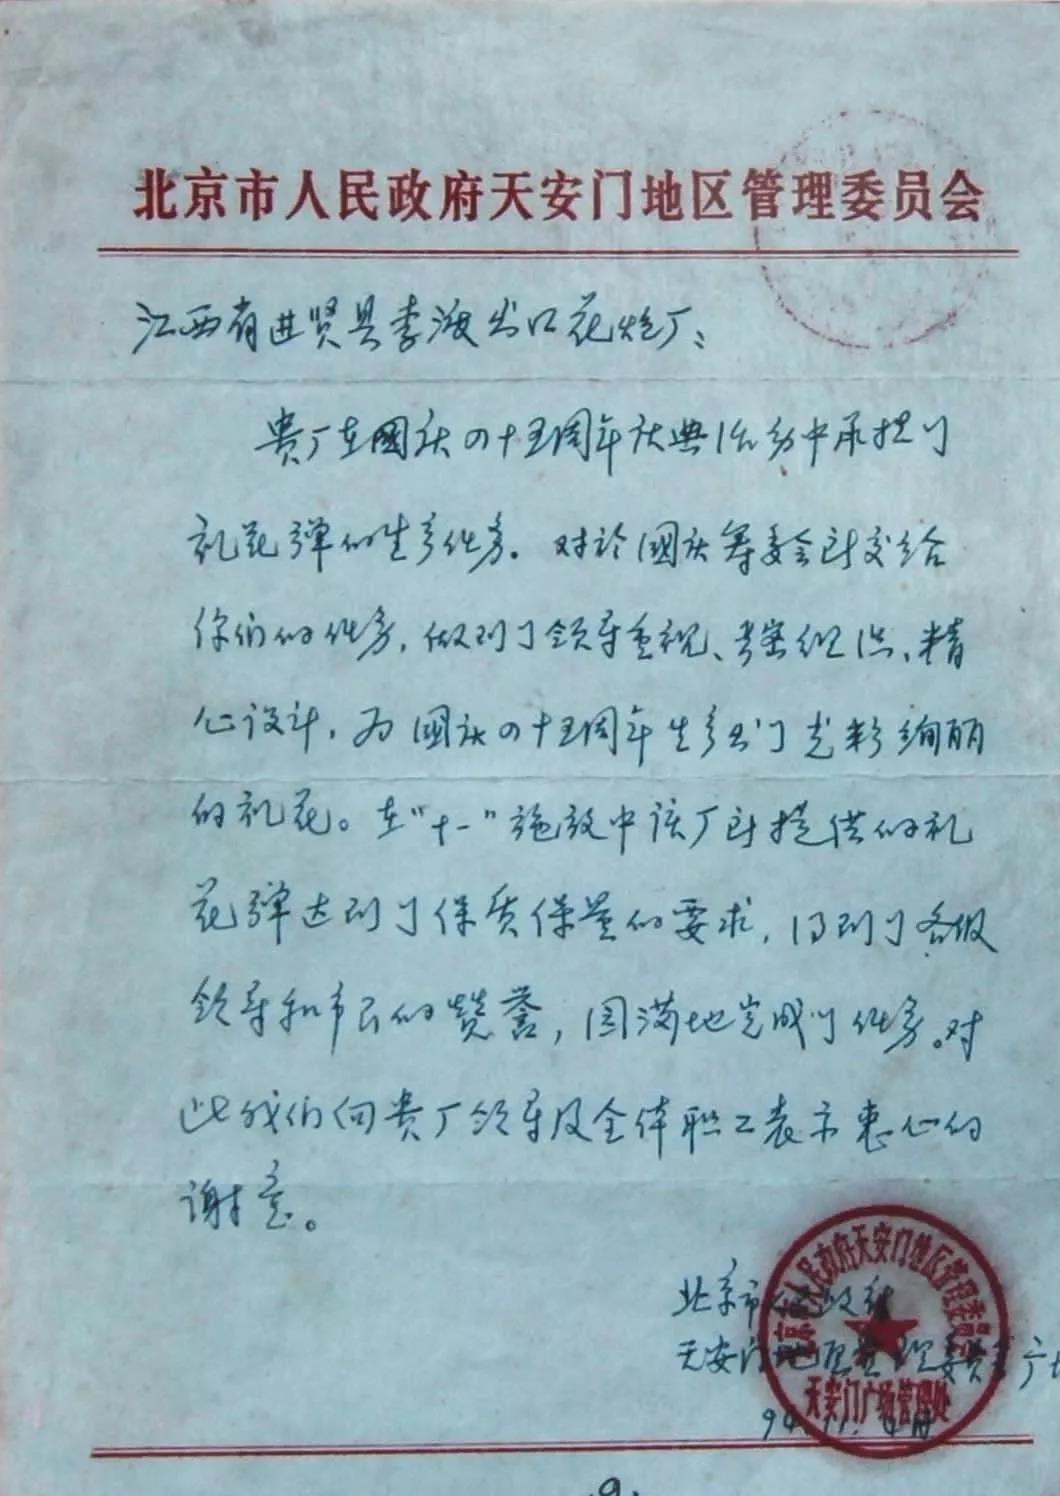 北京市人民政府天安门地区管理委员会
江西省进贤县李渡出口花炮厂：
贵厂在國庆四十五周年庆典活动中承担了
礼花弹的生产任务。对於國庆筹委会所交给
你们的任务，做到了领导重视、严密组织、精
心设计，为國庆四十五周年生产出了光彩绚丽
的礼花。在“十一”施放中该厂所提供的礼
花弹达到了保质保量的要求，得到了各级
领导和市民的赞誉，圆满地完成了任务。对
此我们向贵厂领导及全体职工表示衷心的
谢意。
北京市人民政府
天安门地区管理委员会广场
94.11.
北京市人民政府天安门地区管理委员会
天安门广场管理处
.9.